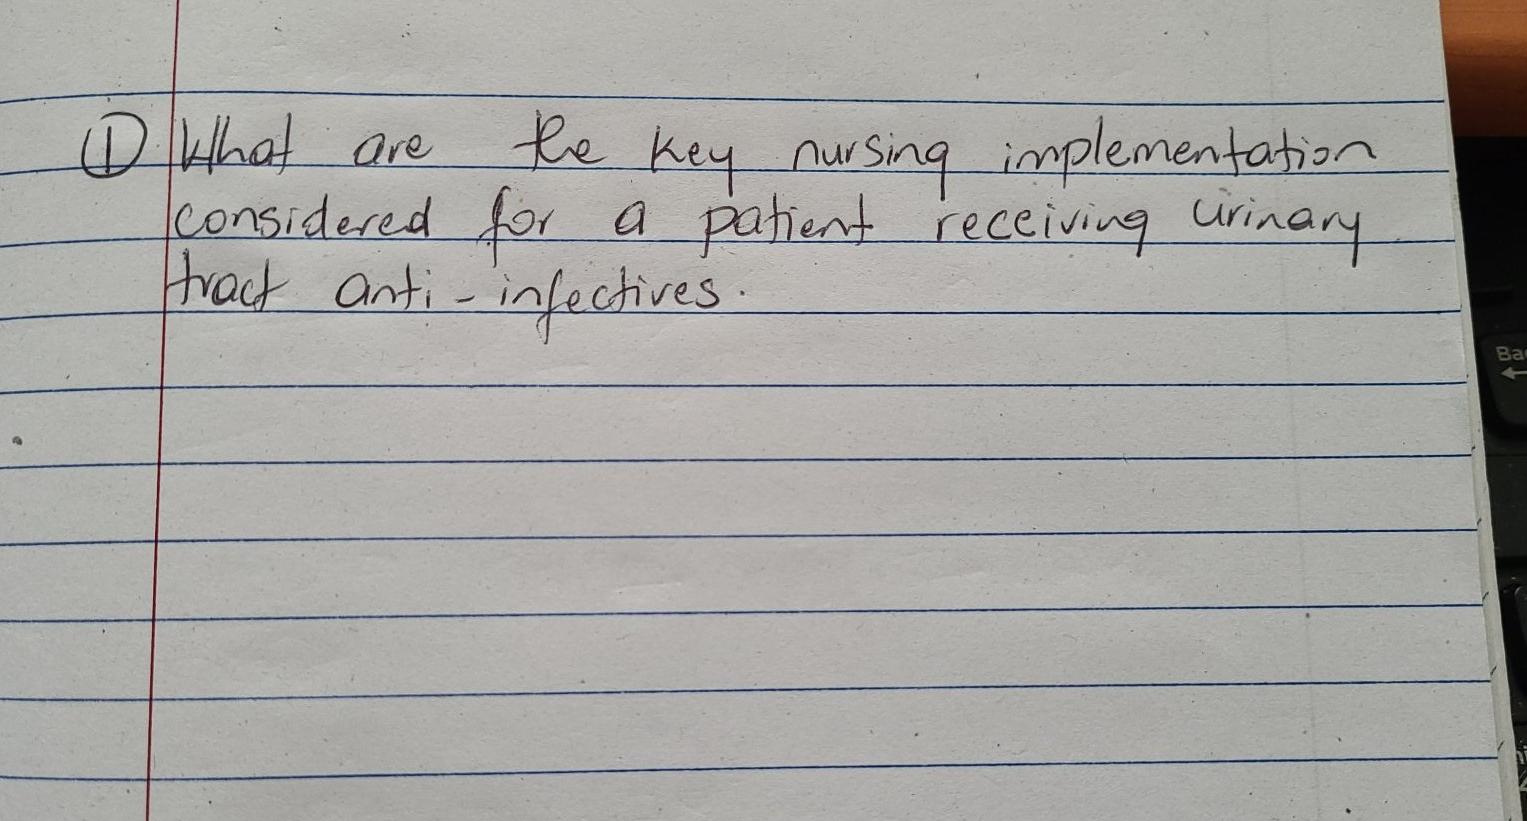 ① What are the key nursing implementation
considered for a patient receiving urinary
tract anti-infectives.
Ba
←